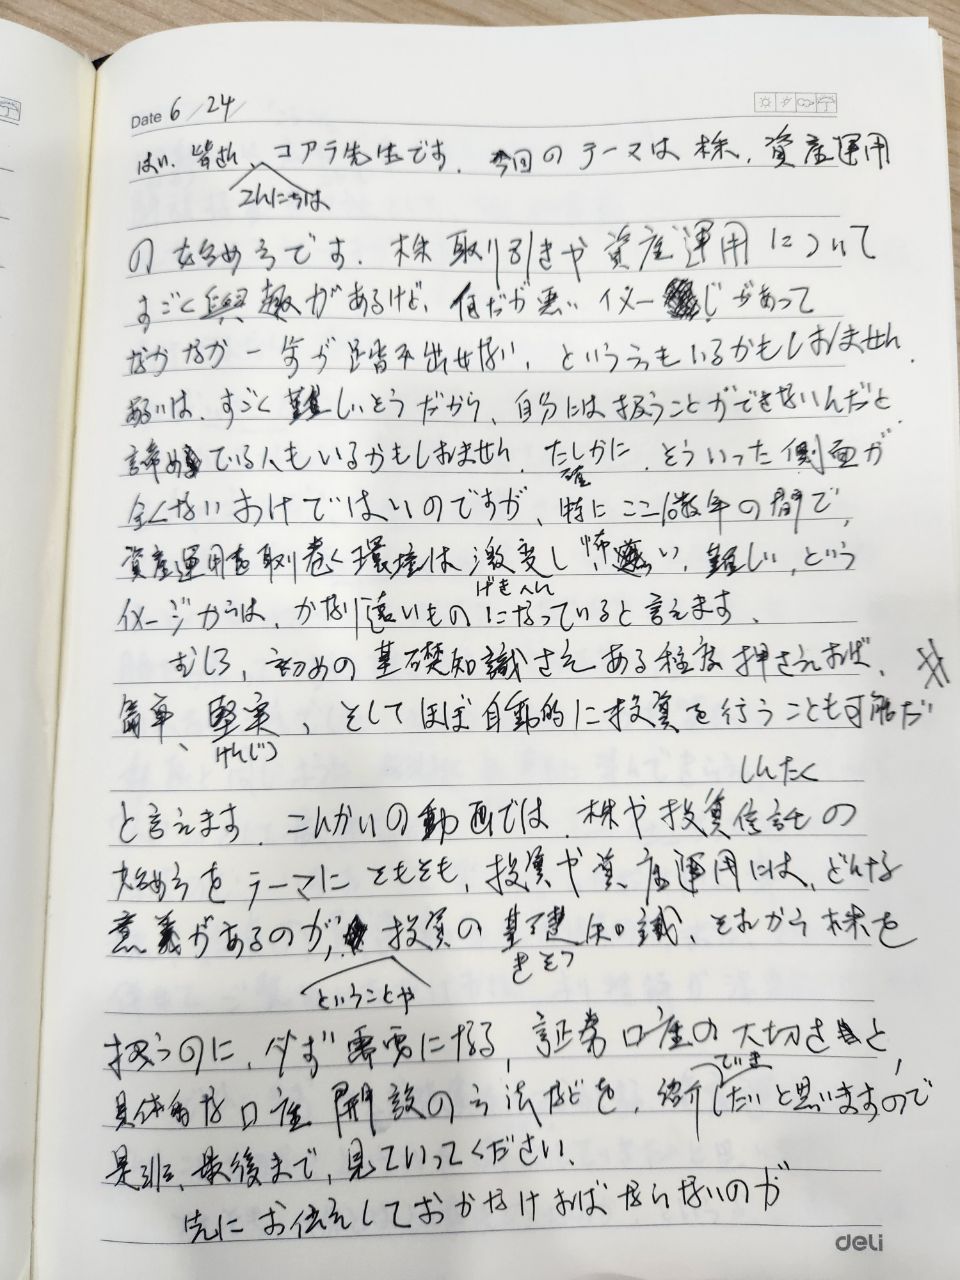 Date 6/24
はい、皆さん、コアラ先生です。今回のテーマは株、資産運用
こんにちは
の始め方です。株取り引きや資産運用について
すごく興趣があるけど、何だが悪いイメージがあって
なかなか一歩が踏み出せない、という方もいるかもしれません。
あるいは、すごく難しいそうだから、自分には扱うことができないんだと
諦めている人もいるかもしれません。たしかに、そういった側面が
確
全くないわけではないのですが、特にここ数年の間で、
資産運用を取り巻く環境は激変し怖い、難しい、という
げきへん
イメージからは、かなり遠いものになっていると言えます。
むしろ、初めの基礎知識さえある程度押さえれば、
簡単、堅実、そしてほぼ自動的に投資を行うことも可能だ
けんじつ
しんたく
と言えます。こんかいの動画では、株や投資信託の
始め方をテーマにともそも、投資や資産運用には、どんな
意義があるのか、投資の基礎知識、それから株を
きそう
ということや
扱うのに、必ず需要になる、証券口座の大切さと、
でき
具体的な口座開設の方法などを、紹介したいと思いますので
是非、最後まで、見ていってください、
先にお伝えしておかなければならないのが
deli